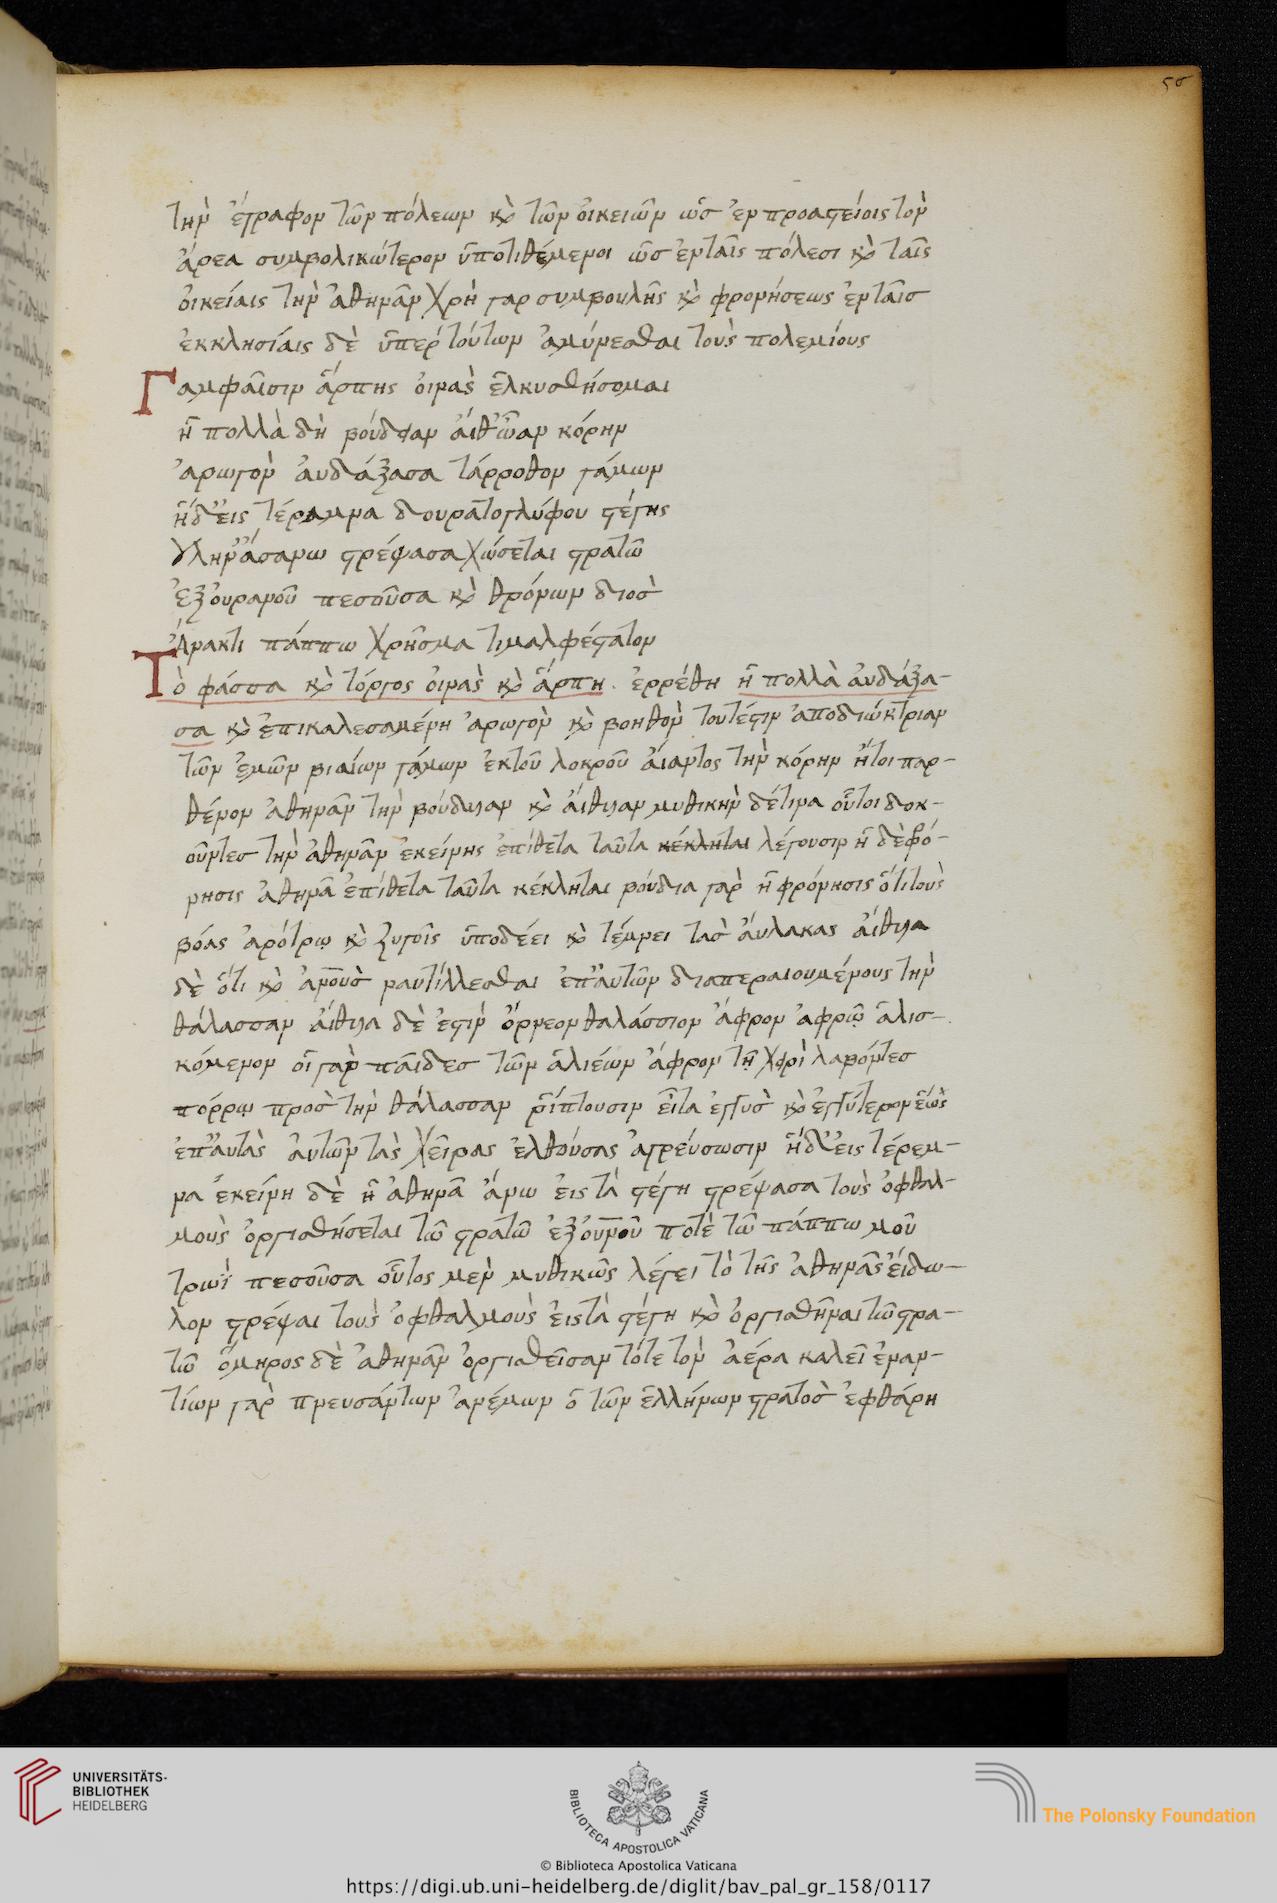 ϛσ
τὴν ἔγραφον τῶν πόλεων κ̀ τῶν οἰκειῶν ὡς ἐν προαστείοις τὸν
ἄρεα συμβολικώτερον ὑποτιθέμενοι ὡς ἐν ταῖς πόλεσι κ̀ ταῖς
οἰκείαις τὴν ἀθηνᾶν χρὴ γαρ συμβουλῆς κ̀ φρονήσεως ἐν ταῖς
ἐκκλησίαις δὲ ὑπὲρ τούτων ἀμύνεσθαι τοὺς πολεμίους
Γαμφαῖσιν ἅρπης οἰνὰς ἑλκυσθήσομαι
ἣ πολλὰ δὴ βούδειαν αἴθυιαν κόρην
ἀρωγὸν αὐδάξασα τάρροθον γάμων
ἥδ' εἰς τέραμνα δουρατογλύφου στέγης
γλήν' ἄσανω στρέψασα χώσεται στρατῶ
ἐξ οὐρανοῦ πεσοῦσα κ̀ θρόνων διὸς
Ἄνακτι πάππω χρῆσμα τιμαλφέστατον
Τὸ φάσσα κ̀ τόργος οἰνὰς κ̀ ἅρπη. ἐρρέθη ἣ πολλὰ αὐδάξα-
σα κ̀ ἐπικαλεσαμένη ἀρωγὸν κ̀ βοηθὸν τουτέστιν ἀποδιώκτριαν
τῶν ἐμῶν βιαίων γάμων ἐκ τοῦ λοκροῦ αἴαντος τὴν κόρην ἤτοι παρ-
θένον ἀθηνᾶν τὴν βούδιαν κ̀ αἴθυιαν μυθικὴν δέτινα οὗτοι δοκ-
οῦντες τὴν ἀθηνᾶν ἐκείνης ἐπίθετα ταῦτα κέκληται λέγουσιν ἡ δὲ φό-
νησις ἀθηνᾶ ἐπίθετα ταῦτα κέκληται βούδια γὰρ ἡ φρόνησις ὅτι τοὺς
βόας ἀρότρῳ κ̀ ζυγοῖς ὑποδέει κ̀ τέμνει τὰς αὔλακας αἴθυια
δὲ ὅτι κ̀ ἀνοὺς ναυτίλλεσθαι ἐπ' αὐτῶν διαπεραιουμένους τὴν
θάλασσαν αἴθυια δὲ ἐστὶν ὄρνεον θαλάσσιον ἄφρον ἀφρῷ ἁλισ-
κόμενον οἱ γὰρ παῖδες τῶν ἁλιέων ἄφρον τῇ χειρὶ λαβόντες
πόρρῳ πρὸς τὴν θάλασσαν ῥίπτουσιν εἶτα ἐγγὺς κ̀ ἐγγύτερον ἕως
ἐπ' αὐτὰς αὐτῶν τὰς χεῖρας ἐλθούσας ἀγρεύσωσιν ἥδ' εἰς τέρεμ-
να ἐκείνη δὲ ἡ ἀθηνᾶ ἄνω εἰς τὰ στέγη στρέψασα τοὺς ὀφθαλ-
μοὺς ὀργισθήσεται τῶ στρατῶ ἐξ οὐνοῦ ποτὲ τῶ πάππω μοῦ
τρωῒ πεσοῦσα οὗτος μὲν μυθικῶς λέγει τὸ τῆς ἀθηνᾶς εἴδω-
λον στρέψαι τοὺς ὀφθαλμοὺς εἰς τὰ στέγη κ̀ ὀργισθῆναι τῶ στρα-
τῶ ὅμηρος δὲ ἀθηνᾶν ὀργισθεῖσαν τότε τὸν ἀέρα καλεῖ ἐναν-
τίων γὰρ πνευσάντων ἀνέμων ὁ τῶν ἑλλήνων στρατὸς ἐφθάρη
UNIVERSITÄTS-
BIBLIOTHEK
HEIDELBERG
BIBLIOTECA APOSTOLICA VATICANA
The Polonsky Foundation
© Biblioteca Apostolica Vaticana
https://digi.ub.uni-heidelberg.de/diglit/bav_pal_gr_158/0117